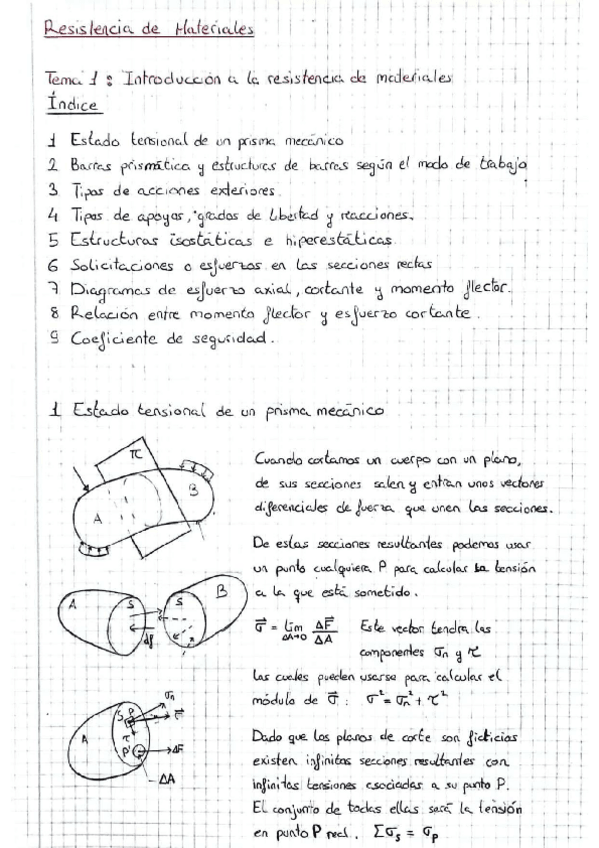 Resistencia de Materiales
Tema 1: Introducción a la resistencia de materiales
Índice
1 Estado tensional de un prisma mecánico
2 Barras prismática y estructuras de barras según el modo de trabajo
3 Tipos de acciones exteriores
4 Tipos de apoyos, grados de libertad y reacciones.
5 Estructuras isostáticas e hiperestáticas
6 Solicitaciones o esfuerzos en las secciones rectas
7 Diagramas de esfuerzo axial, cortante y momento flector.
8 Relación entre momento flector y esfuerzo cortante.
9 Coeficiente de seguridad.
1 Estado tensional de un prisma mecánico
π
A
B
Cuando cortamos un cuerpo con un plano,
de sus secciones salen y entran unos vectores
diferenciales de fuerza que unen las secciones.
De estas secciones resultantes podemos usar
un punto cualquiera P para calcular la tensión
a la que está sometido.
A
S
S
B
df
σ⃗ = lim ΔA→0 ΔF⃗/ΔA Este vector tendra las
componentes σn y τ
las cuales pueden usarse para calcular el
módulo de σ⃗ : σ² = σn² + τ²
A
S
P
σn
τ
P'
ΔF
ΔA
Dado que los planos de corte son ficticios
existen infinitas secciones resultantes con
infinitas tensiones asociadas a su punto P.
El conjunto de todas ellas será la tensión
en punto P real. Σσs = σp